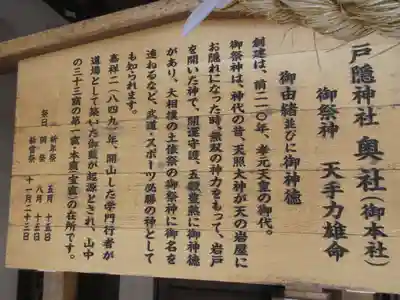 戸隠神社 奥社(御本社)
御祭神 天手力雄命
御由緒並びに御神徳
創建は、前二一〇年、孝元天皇の御代。
御祭神は、神代の昔、天照大神が天の岩屋に
お隠れになった時、無双の神力をもって、岩戸
を開いた神で、開運守護、五穀豊熟に御神徳
があり、大相撲の土俵祭の御祭神に御名を
連ねるなど、武道・スポーツ必勝の神として
も知られます。
嘉祥二(八四九)年、開山した学門行者が
道場として築いた御堂が起源とされ、山中
の三十三窟の第一窟・本窟(宝窟)の在所です。
祭日 祈年祭 五月十五日
例祭 八月十五日
新嘗祭 十一月二十三日